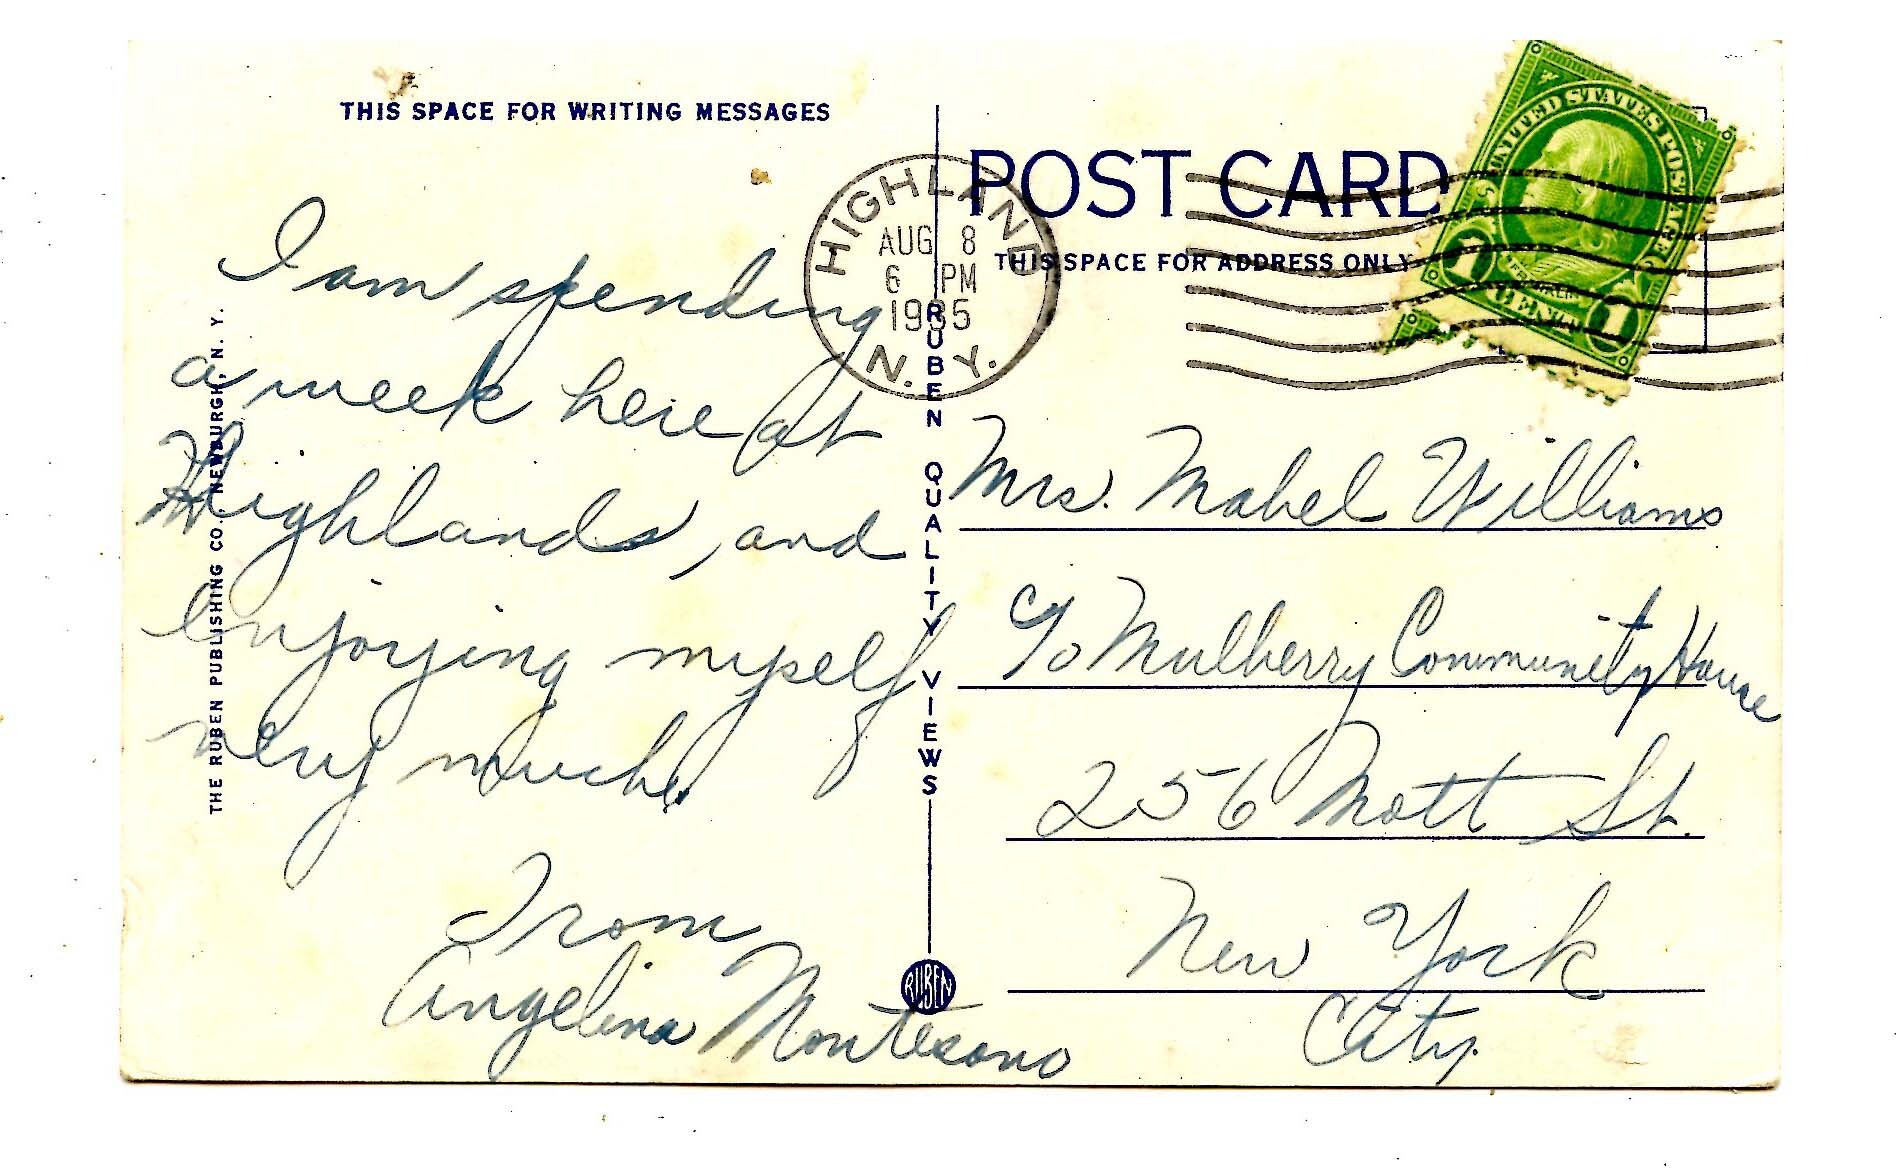 THIS SPACE FOR WRITING MESSAGES
I am spending
a week here at
Highlands, and
enjoying myself
very much.
From
Angelina Montesano
THE RUBEN PUBLISHING CO. NEWBURGH, N. Y.
RUBEN QUALITY VIEWS
RUBEN
HIGHLAND
AUG 8
6 PM
1935
N. Y.
POST CARD
THIS SPACE FOR ADDRESS ONLY
UNITED STATES POSTAGE
FRANKLIN
1 CENT 1
Mrs. Mabel Williams
c/o Mulberry Community House
256 Mott St.
New York
City.